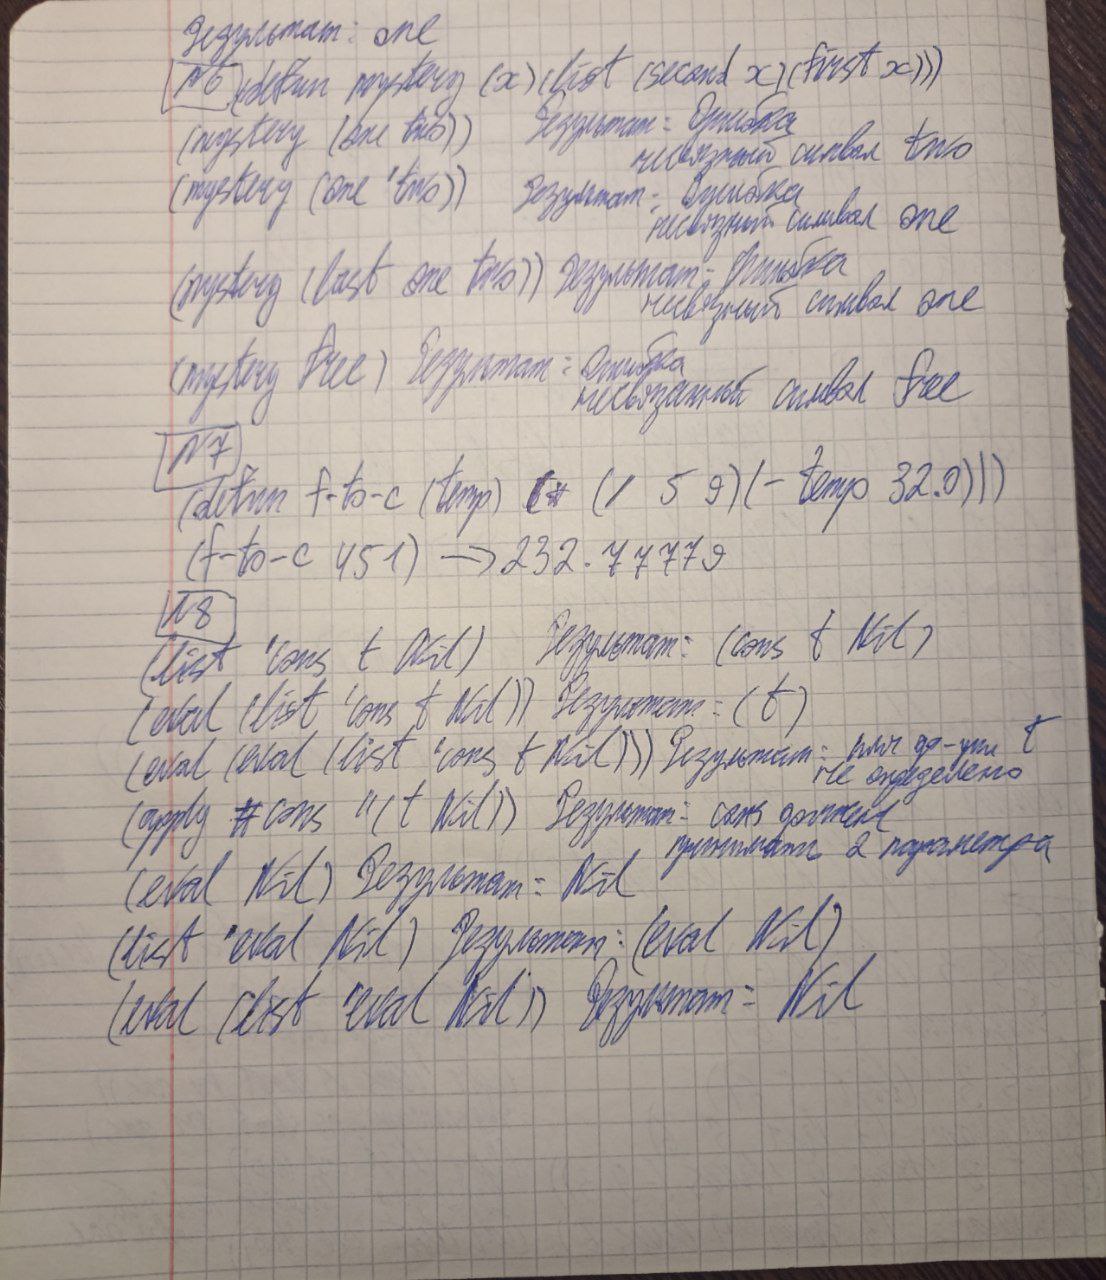 Результат: one
№6 (defun mystery (x) (list (second x) (first x)))
(mystery (one two)) Результат: Ошибка
несвязный символ two
(mystery (one 'two)) Результат: Ошибка
несвязный символ one
(mystery (last one two)) Результат: Ошибка
несвязный символ one
(mystery free) Результат: Ошибка
несвязанный символ free
№7
(defun f-to-c (temp) (* (/ 5 9) (- temp 32.0)))
(f-to-c 451) → 232.77779
№8
(list 'cons t Nil) Результат: (cons t Nil)
(eval (list 'cons t Nil)) Результат: (t)
(eval (eval (list 'cons t Nil))) Результат: имя ф-ции t
не определено
(apply #cons "(t Nil)) Результат: cons должен
принимать 2 параметра
(eval Nil) Результат: Nil
(list 'eval Nil) Результат: (eval Nil)
(eval (list 'eval Nil)) Результат: Nil